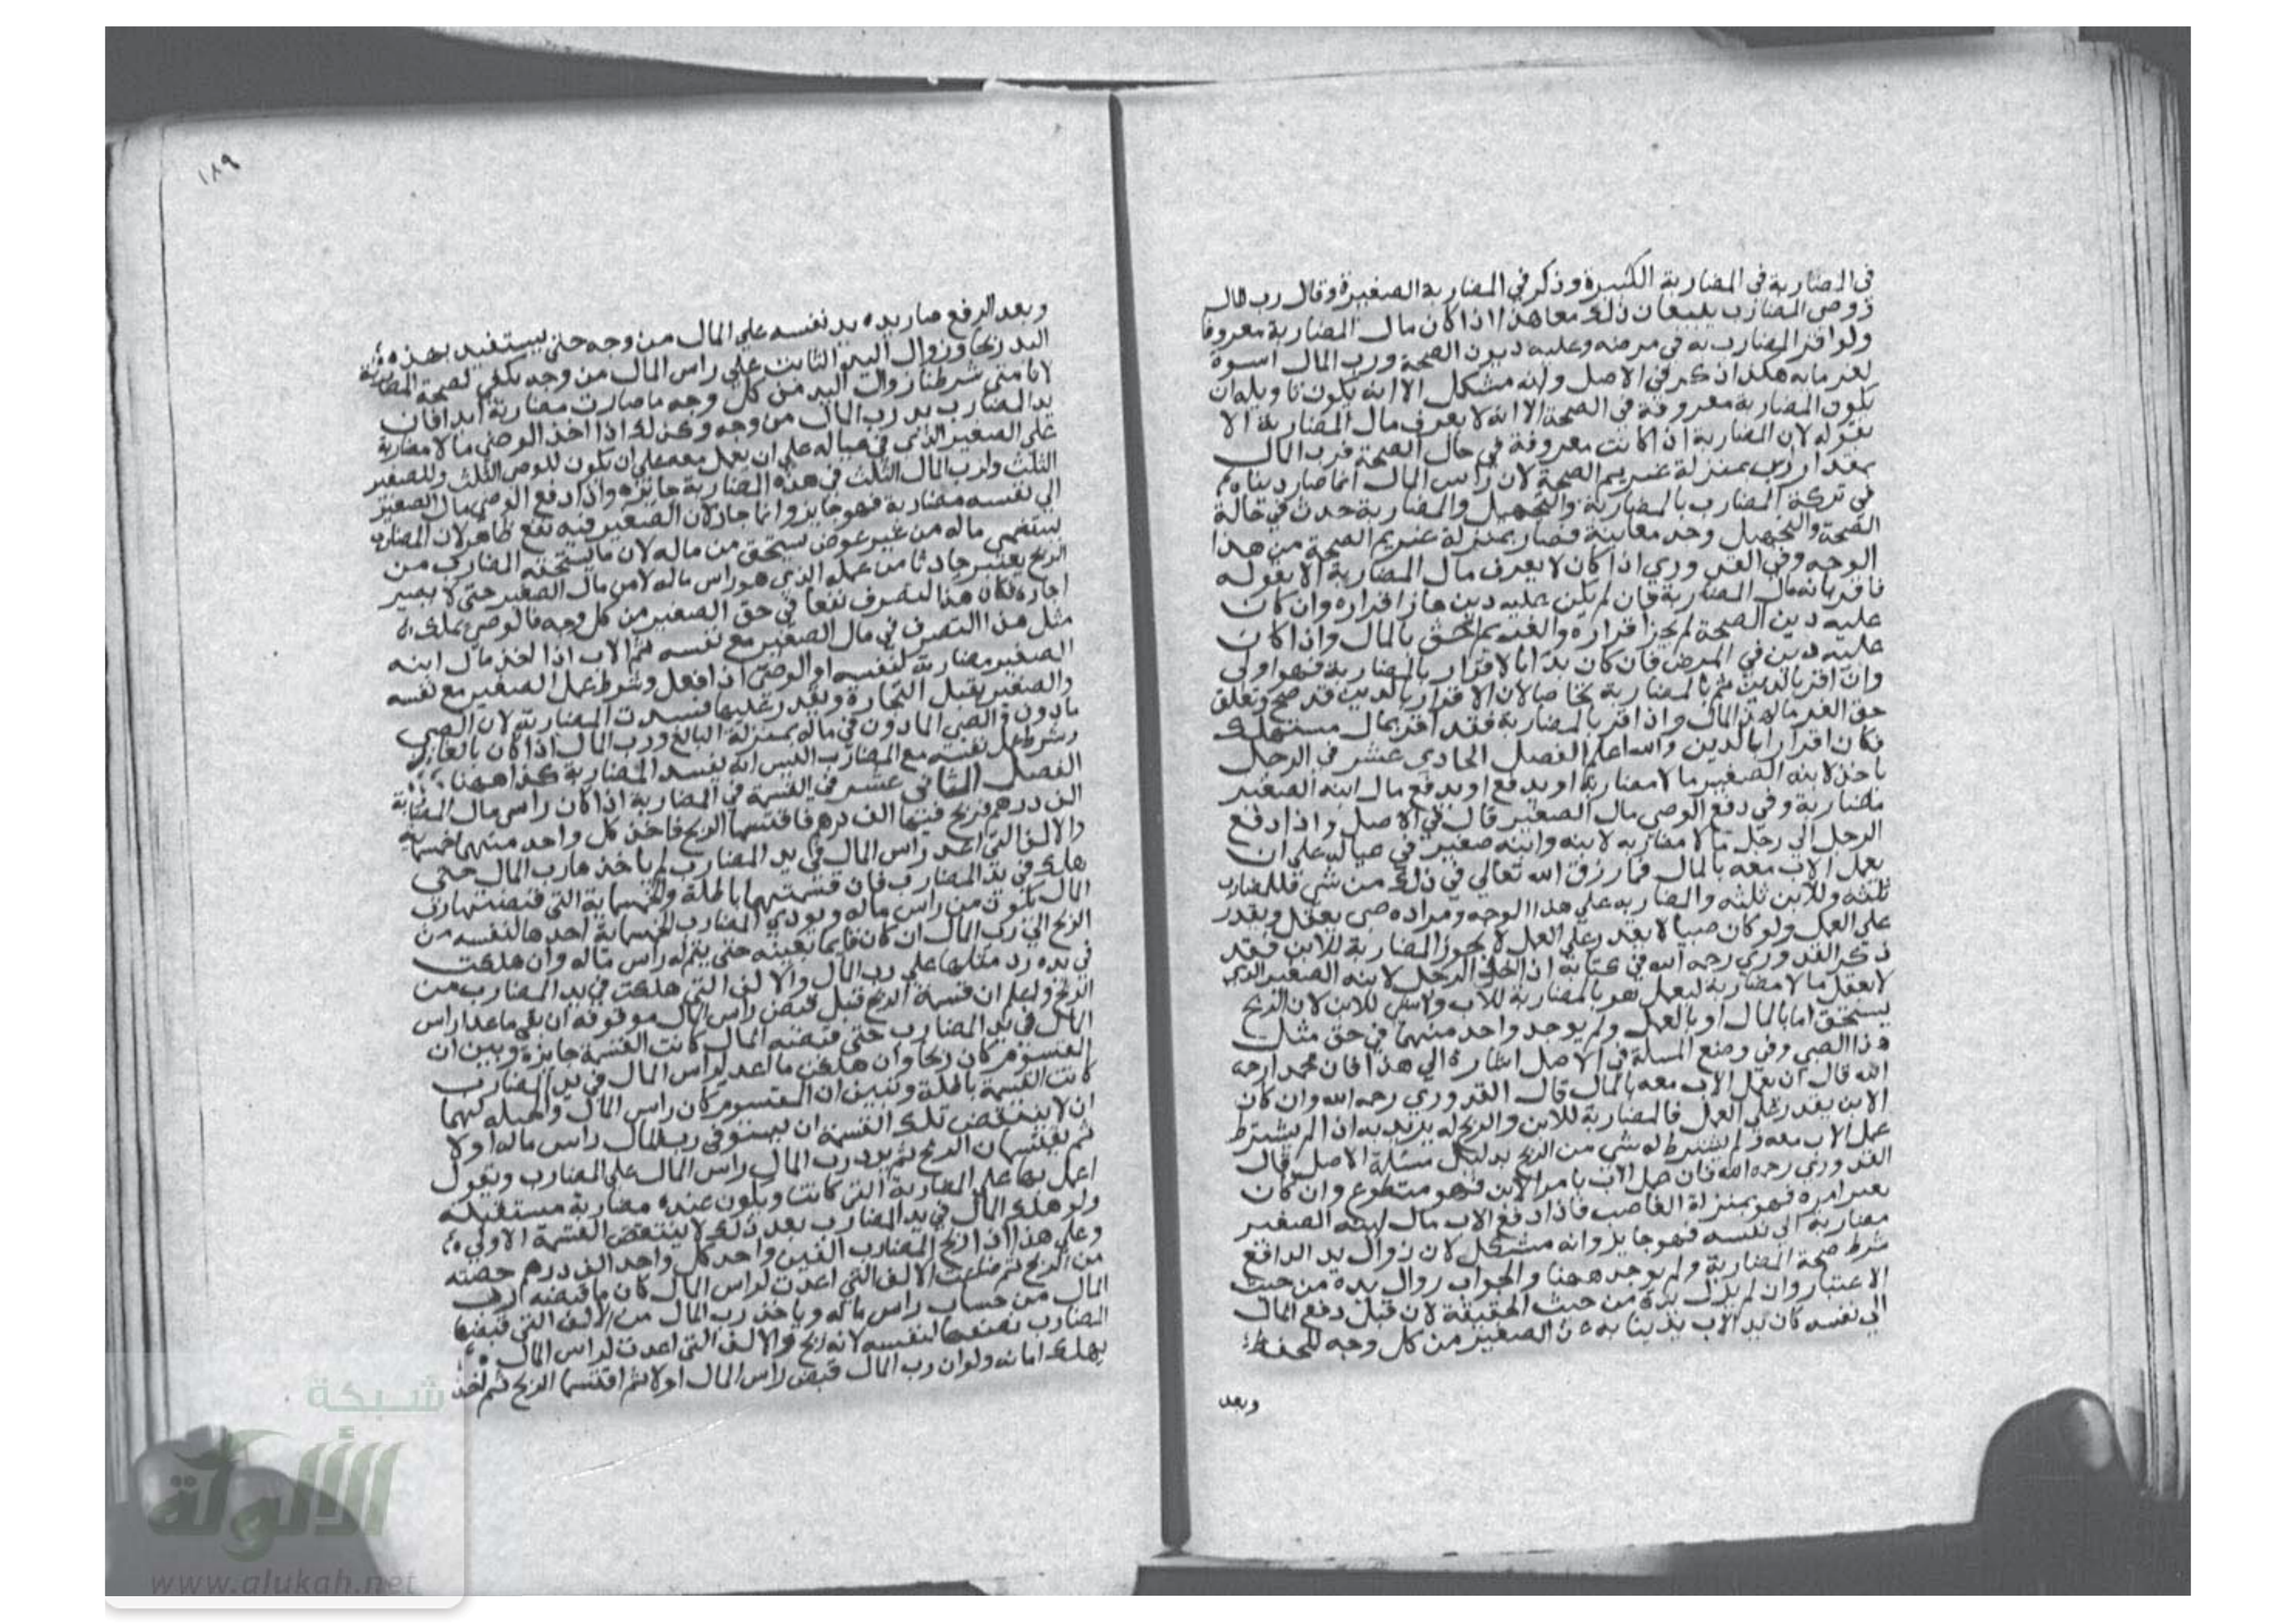 في المضاربة في المضاربة الكبيرة وذكر في المضاربة الصغيرة وقال رب المال
ووصي المضارب يبيعان ذلك معا هذا اذا كان مال المضاربة معروفا
ولو اقر المضارب به في مرضه وعليه ديون الصحة ورب المال اسوة
لغرمايه هكذا ذكر في الاصل وانه مشكل الا انه يكون تاويله ان
يكون المضاربة معروفة في الصحة الا انه لا يعرف مال المضاربة الا
بقوله لان المضاربة اذا كانت معروفة في حال الصحة فرب المال
بمقدار راس بمنزلة غريم الصحة لان راس المال انما صار دينا
في تركة المضارب بالمضاربة والتجهيل والمضاربة حدث في حالة
الصحة والتجهيل وجد معاينة فصار بمنزلة غريم الصحة من هذا
الوجه وفي القدوري اذا كان لا يعرف مال المضاربة الا بقوله
فاقر بانه مال المضاربة فان لم يكن عليه دين جاز اقراره وان كان
عليه دين الصحة لم يجز اقراره والغريم احق بالمال واذا كان
عليه دين في المرض فان كان بدا بالاقرار بالمضاربة فهو اولي
وان اقر بالدين ثم بالمضاربة تحاصا لان الاقرار بالدين قد صح وتعلق
حق الغرما بهذا المال واذا اقر بالمضاربة فقد اقر بمال مستهلك
فكان اقرارا بالدين والله اعلم الفصل الحادي عشر في الرجل
ياخذ لابنه الصغير مالا مضاربة او يدفع او يدفع مال ابنه الصغير
مضاربة وفي دفع الوصي مال الصغير قال في الاصل واذا دفع
الرجل الي رجل مالا مضاربه لابنه وابنه صغير في عياله علي ان
يعمل الاب معه بالمال فما رزق الله تعالي في ذلك من شي فللمضارب
ثلثه وللابن ثلثه والمضاربه علي هذا الوجه ومراده صبي يعقل ويقدر
علي العمل ولو كان صبيا لا يقدر علي العمل لا يجوز المضاربة للابن فقد
ذكر القدوري رحمه الله في كتابه اذا اخذ الرجل لابنه الصغير الذي
لا يعقل مالا مضاربة ليعمل هو بالمضاربة للاب ولا شي للابن لان الربح
يستحق اما بالمال او بالعمل ولم يوجد واحد منهما في حق مثل
هذا الصبي وفي وضع المسلة في الاصل اشارة الي هذا فان محمدا رحمه
الله قال ان يعمل الاب معه بالمال قال القدوري رحمه الله وان كان
الابن يقدر علي العمل فالمضاربة للابن والربح له يريد به اذا لم يشترط
عمل الاب معه ولم يشترط له شي من الربح بدليل مسئلة الاصل وقال
القدوري رحمه الله فان عمل الاب بامر الابن فهو متطوع وان كان
بغير امره فهو بمنزلة الغاصب فاذا دفع الاب مال ابنه الصغير
مضاربة الي نفسه فهو جايز وانه مشكل لان زوال يد الدافع
شرط صحة المضاربة ولم يوجد ههنا والجواب زوال يده من حيث
الاعتبار وان لم يزل يده من حيث الحقيقة لان قبل دفع المال
الي نفسه كان يد الاب يد نيابة عن الصغير من كل وجه للحفظ
وبعد
١٨٩
وبعد الرفع صار يده يد نفسه علي المال من وجه حتي يستفيد بهذه
اليد ربحا وزوال اليد الثابت علي راس المال من وجه يكفي لصحة المضاربة
لانا متي شرطنا زوال اليد من كل وجه ما صارت مضاربة ابدا فان
يد المضارب يد رب المال من وجه وكذلك اذا اخذ الوصي مالا مضاربة
علي الصغير الذي في عياله علي ان يعمل معه علي ان يكون للوصي الثلث وللصغير
الثلث ولرب المال الثلث في هذه المضاربة جايزه واذا دفع الوصي مال الصغير
الي نفسه مضاربة فهو جايز وانما جاز لان الصغير فيه نفع ظاهر لان المضارب
ليستنمي ماله من غير عوض يستحق من ماله لان ما يستحقه المضارب من
الربح يعتبر حادثا من عمله الذي هو راس ماله لا من مال الصغير حتي لا يصير
اجارة فكان هذا التصرف نفعا في حق الصغير من كل وجه فالوصي يملك
مثل هذا التصرف في مال الصغير مع نفسه ثم الاب اذا اخذ مال ابنه
الصغير مضاربة لنفسه او الوصي اذا فعل وشرط عمل الصغير مع نفسه
والصغير يقبل التجارة ويقدر عليها فسدت المضاربة لان الصبي
ماذون والصبي الماذون في ماله بمنزلة البالغ ورب المال اذا كان بالغا
وشرط عمل نفسه مع المضارب اليس انه يفسد المضاربة كذا ههنا
الفصل الثاني عشر في القسمة في المضاربة اذا كان راس مال المضاربة
الف درهم فربح فيها الف درهم فاقتسما الربح فاخذ كل واحد منهما خمسماية
والالف التي اعد راس المال في يد المضارب لم ياخذها رب المال حتي
هلك في يد المضارب فان قسمتهما باطلة والخمسماية التي قبضها رب
المال يكون من راس ماله ويودي المضارب الخمسماية اخذها لنفسه من
الربح الي رب المال ان كان قايما بعينه حتي يتم له راس ماله وان هلكت
في يده رد مثلها علي رب المال والالف التي هلكت في يد المضارب من
الربح واعلم ان قسمة الربح قبل قبض راس المال موقوفه ان بقي ما عد لراس
المال في يد المضارب حتي قبضه المال كانت القسمة جايزة وتبين ان
المقسوم كان ربحا وان هلكت ما اعد لراس المال في يد المضارب
كانت القسمة باطلة وتبين ان المقسوم كان راس المال والحيله كيما
ان لا ينتقض تلك القسمة ان يستوفي رب المال راس ماله اولا
ثم يقتسمان الربح ثم يرد رب المال راس المال علي المضارب ويقول
اعمل بها علي المضاربة التي كانت ويكون عنده مضاربة مستقبلة
ولو هلك المال في يد المضارب بعد ذلك لا ينتقض القسمة الاولي
وعلي هذا اذا ربح المضارب الفين واخذ كل واحد الف درهم حصته
من الربح ثم ضاعت الالف التي اعدت لراس المال كان ما قبضه رب
المال من حساب راس ماله وياخذ رب المال من الالف التي قبضها
المضارب نصفها لنفسه لانه ربح والالف التي اعدت لراس المال
يهلك امانه ولو ان رب المال قبض راس المال اولا ثم اقتسما الربح ثم اخذ
شبكة
الألوكة
www.alukah.net